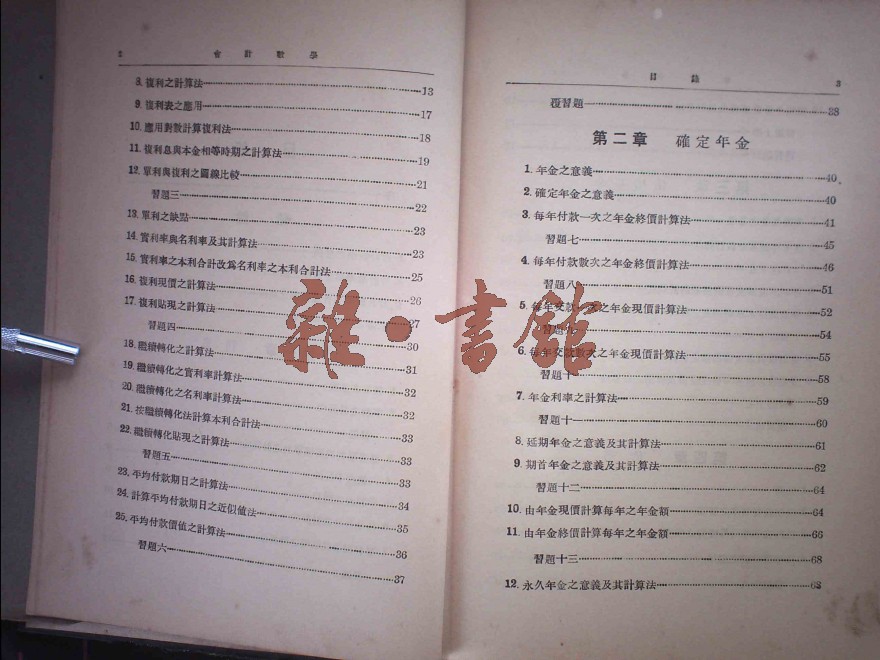 2 會計數學
8. 複利之計算法 13
9. 複利表之應用 17
10. 應用對數計算複利法 18
11. 複利息與本金相等時期之計算法 19
12. 單利與複利之圖線比較 21
習題三 22
13. 單利之缺點 23
14. 實利率與名利率及其計算法 23
15. 實利率之本利合計改爲名利率之本利合計法 25
16. 複利現價之計算法 26
17. 複利貼現之計算法 27
習題四 30
18. 繼續轉化之計算法 31
19. 繼續轉化之實利率計算法 31
20. 繼續轉化之名利率計算法 32
21. 按繼續轉化法計算本利合計法 33
22. 繼續轉化貼現之計算法 33
習題五 33
23. 平均付款期日之計算法 34
24. 計算平均付款期日之近似値法 35
25. 平均付款價値之計算法 36
習題六 37
目錄 3
複習題 38
第二章 確定年金
1. 年金之意義 40
2. 確定年金之意義 40
3. 每年付款一次之年金終價計算法 41
習題七 45
4. 每年付款數次之年金終價計算法 46
習題八 51
5. 每年交款一次之年金現價計算法 52
習題九 54
6. 每年交款數次之年金現價計算法 55
習題十 58
7. 年金利率之計算法 59
習題十一 60
8. 延期年金之意義及其計算法 61
9. 期首年金之意義及其計算法 62
習題十二 64
10. 由年金現價計算每年之年金額 64
11. 由年金終價計算每年之年金額 66
習題十三 68
12. 永久年金之意義及其計算法 68
雜·書館